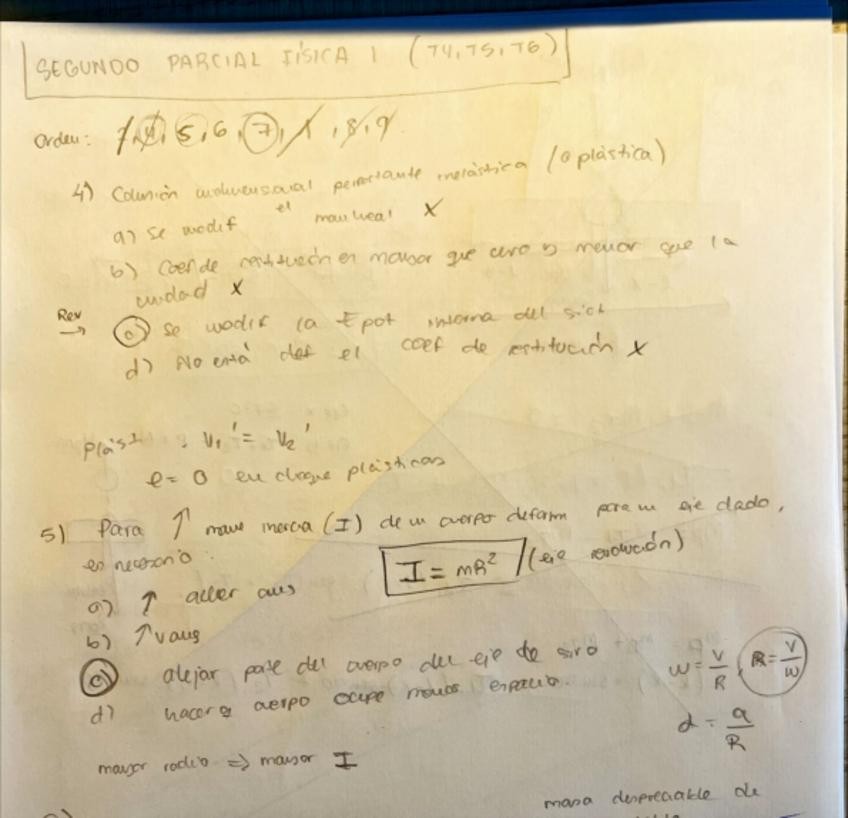 SEGUNDO PARCIAL FÍSICA 1 (T4, T5, T6)
Orden: 1, 4, 5, 6, 7, 1, 8, 9
4) Colisión perfectamente inelástica (o plástica)
a) Se modif el mom lineal X
b) Coef de restitución es mayor que cero y menor que la
unidad X
Rev → c) Se modif la E pot interna del sist
d) No está def el coef de restitución X
Plást: V₁' = V₂'
e = 0 en choque plásticos
5) Para ↑ mom inercia (I) de un cuerpo deform para un eje dado,
es necesario:
I = mR² / (eje revolución)
a) ↑ aceler ang
b) ↑ v ang
c) alejar parte del cuerpo del eje de giro
d) hacer q cuerpo ocupe menos espacio.
w = V/R, R = V/w
α = a/R
mayor radio ⇒ mayor I
masa despreciable de